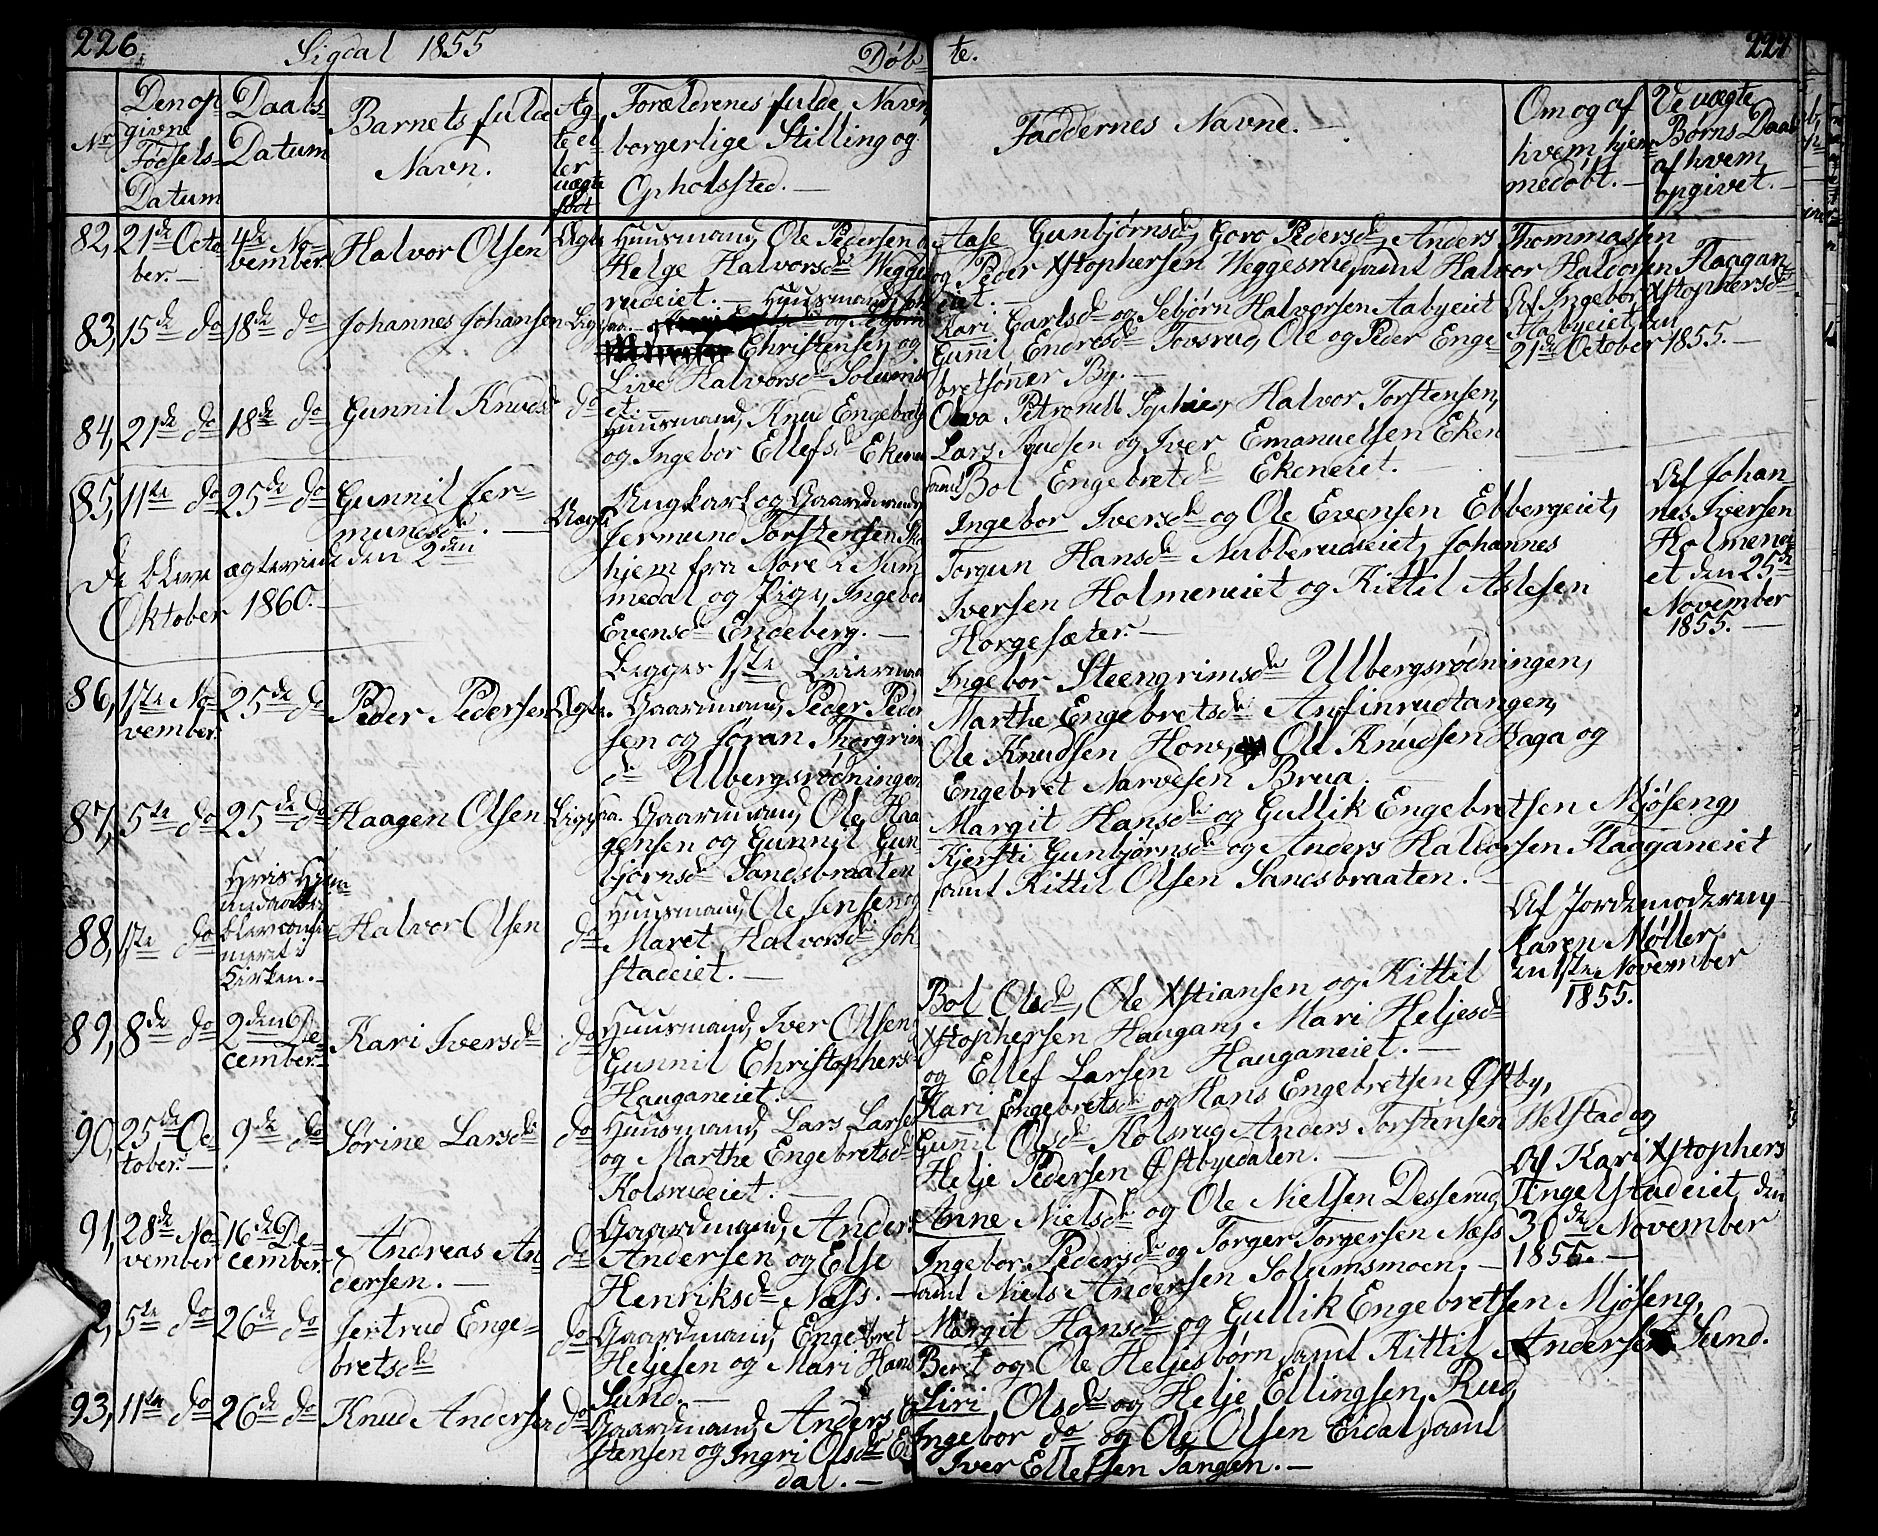 226 Sigdal 1855 Døb-
te. 227
Nr
Den op
givne
Fødsels-
Datum
Daabs-
Datum
Barnets fulde
Navn.
Æg-
te el-
ler
uægte
født
Forældrenes fulde Navn,
borgerlige Stilling og
Opholdssted. —
Faddernes Navne. —
Om og af
hvem hjem
medøbt. —
Ve uægte
Børns Daab
af hvem
opgivet. —
82, 21de Octo
ber. —
4de No-
vember.
Halvor Olsen
Ægte
Huusmand, Ole Pedersen o
Helge Halvorsd. Vegge
rudeiet. —
Aase Gunbjørnsd., Goro Pedersd., Anders Thommassen
og Peder Xstophersen Veggesrue samt Halvor Halvorsen Flaagan-
eiet. —
83, 15de do
18de do
Johannes Johansen
Huusmand, Joh
Christensen og
Live Halvorsd. Solums
et
Kari Carlsd. og Sebjørn Halvorsen Aabyeiet
Gunnil Endresd. Tovsrud, Ole og Peder Enge-
bretsøner By. —
Af Ingebor Xstophersd.
Aabyeiet, den
21de October 1855. —
84, 21de do
18de do
Gunnil Knudsd.
do
Huusmand, Knud Engebrets
og Ingebor Ellefsd. Ekene
Petronell Sophie, Halvor Torstensen,
Lars Knudsen og Iver Emanuelsen Eken
samt Bol Engebretsd. Ekeneiet. —
85, 11te do
25de do
Gunnil Jer-
mundsd. —
Uægte
Ungkarl og Gaardmand,
Jermund Torstensen
hjem fra Nore i Num
medal og Pige, Ingebor
Evensd. Endeberg. —
Begges 1ste Leiermaa
De bleve ægteviede den 2den
Oktober 1860. —
Ingebor Iversd. og Ole Evensen Ebbergeiet,
Torgun Hansd. Nubberudseiet, Johannes
Iversen Holmeneiet og Kittil Aslesen
Horgesæter. —
Af Johan-
nes Iversen
Holmenei
et den 25de
November
1855. —
86, 1ste No-
vember.
25de do
Peder Pedersen
Ægte.
Gaardmand, Peder Peder
sen og Jøran Thorgrim
d. Ulbergsrødningen
Ingebor Steengrimsd. Ulbergsrødningen,
Marthe Engebretsd. Anfinrudtangen,
Ole Knudsen Hove, Ole Knudsen Haga og
Engebret Narvesen Brua.
87, 5te do
25de do
Haagen Olsen
Gaardmand, Ole Haa
gensen og Gunnil Gun
bjørnsd. Sandsbraaten
Margit Hansd. og Gullik Engebretsen Mjøseng,
Kjersti Gunbjørnsd. og Anders Halvorsen Flaaganeiet
samt Kittil Olsen Sandsbraaten. —
88, 1ste do
Hvis Hjem
medaaben
blev confir
meret i
Kirken. —
Halvor Olsen
do
Huusmand, Ole Jensen og
Maret Halvorsd. Joh
stadeiet. —
Af Jordemoderen,
Karen Møller
den 1ste November
1855.
89, 8de do
2den De-
cember. —
Kari Iversd.
do
Huusmand, Iver Olsen,
Gunnil Christophers
Hauganeiet. —
Bol Olsd., Ole Xstiansen og Kittil
Xstophersen Haugan, Mari Heljesd.
og Ellef Larsen Hauganeiet. —
90, 25de Oc-
tober. —
9de do
Sørine Larsd.
do
Huusmand, Lars Larse
og Marthe Engebretsd.
Kolsrudeiet. —
Kari Engebretsd. og Hans Engebretsen Østby,
Gunnil Olsd. Kolsrud, Anders Torstensen Velstad og
Helje Pedersen Østbyedalen. —
91, 28de No-
vember
16de De-
cember.
Andreas An-
dersen. —
do
Gaardmand, Anders
Andersen og Else
Henriksd. Næss. —
Anne Nielsd. og Ole Nielsen Desserud,
Ingebor Pedersd. og Torger Torgersen Næss
samt Niels Andersen Solumsmoen. —
Af Kari Xstophers
Tingelstadeiet, den
30de November
1855. —
2, 5te do
26de do
Jertrud Enge-
bretsd.
do
Gaardmand, Engebret
Heljesen og Mari Hans
Sund. —
Margit Hansd. og Gullik Engebretsen Mjøseng,
Beret og Ole Heljesbørn samt Kittil Andersen Sund.
93, 11te do
26de do
Knud Andersen
do
Gaardmand, Anders
stensen og Ingri Olsd. E
dal. —
Siri Olsd. og Helje Ellingsen Rud,
Ingebor do og Ole Olsen Eidal samt
Iver Ellefsen Tangen. —